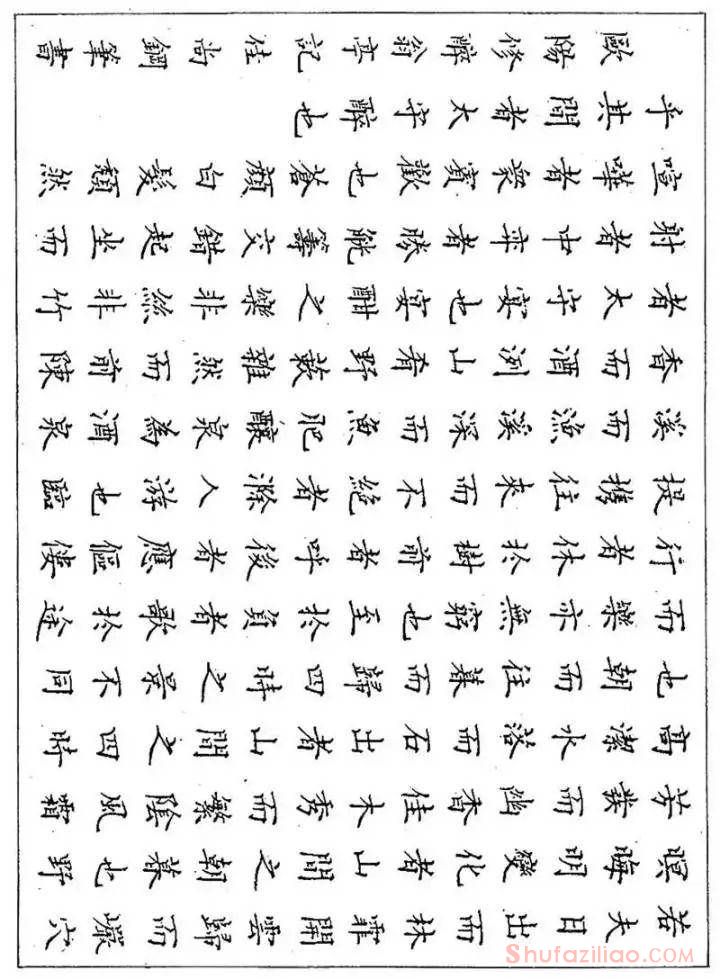 若夫日出而林霏開雲歸而巖穴
暝晦明變化者山間之朝暮也野
芳發而幽香佳木秀而繁陰風霜
高潔水落而石出者山間之四時
也朝而往暮而歸四時之景不同
而樂亦無窮也至於負者歌於途
行者休於樹前者呼後者應傴僂
提携往來而不絕者滁人游也臨
溪而漁溪深而魚肥釀泉為酒泉
香而酒洌山肴野蔌雜然而前陳
者太守宴也宴酣之樂非絲非竹
射者中弈者勝觥籌交錯起坐而
喧嘩者衆賓歡也蒼顏白髮頹然
乎其間者太守醉也
歐陽修醉翁亭記佳尚鋼筆書
Shufaziliao.com